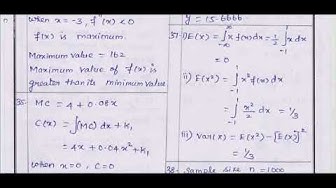 when x=-3, f"(x) <0
f(x) is maximum.
Maximum value = 162
Maximum value of f(x) is
greater than its minimum value
35. MC = 4 + 0.08x
C(x) = ∫(MC) dx + k₁
= 4x + 0.04x² + k₁
when x=0, C=0
y = 15.6666
37. i) E(x) = ∫ x f(x) dx = 1/2 ∫ x dx
-∞ ∞ -1 1
ii) E(x²) = ∫ x² f(x) dx
-1 1
= ∫ x²/2 dx = 1/3
-1 1
iii) Var(x) = E(x²) - [E(x)]²
= 1/3
38. Sample size n = 1000